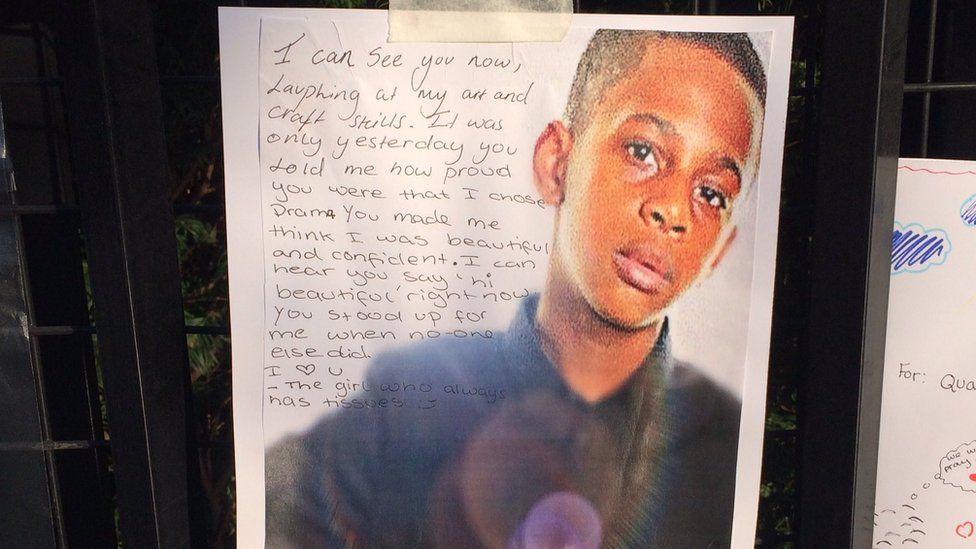 I can see you now,
Laughing at my art and
craft skills. It was
only yesterday you
told me how proud
you were that I chose
Drama You made me
think I was beautiful
and confident. I can
hear you say 'hi
beautiful' right now
you stood up for
me when no-one
else did.
I ♡ u
- The girl who always
has tissues :)
For: Qua
we w
pray